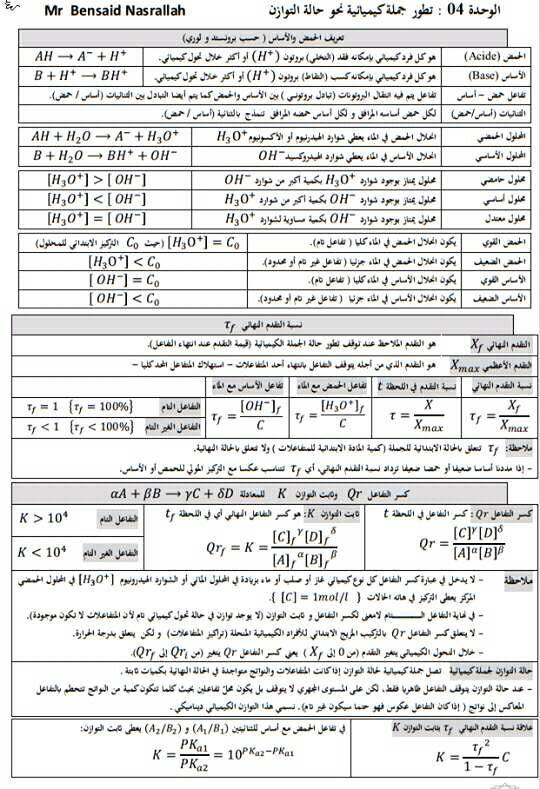 Mr Bensaid Nasrallah
الوحدة 04 : تطور جملة كيميائية نحو حالة التوازن
تعريف الحمض والأساس ( حسب برونستد و لوري)
الحمض (Acide) هو كل فرد كيميائي بإمكانه فقد (التخلي) بروتون (H⁺) أو أكثر خلال تحول كيميائي. AH ⟶ A⁻ + H⁺
الأساس (Base) هو كل فرد كيميائي بإمكانه كسب (التقاط) بروتون (H⁺) أو أكثر خلال تحول كيميائي. B + H⁺ ⟶ BH⁺
تفاعل حمض – أساس تفاعل يتم فيه انتقال البروتونات (تبادل بروتوني) بين الأساس والحمض كما يتم أيضا التبادل بين الثنائيات (أساس / حمض).
الثنائيات (أساس/حمض) لكل حمض أساسه المرافق و لكل أساس حمضه المرافق تنمذج بالثنائية (أساس / حمض).
المحلول الحمضي انحلال الحمض في الماء يعطي شوارد الهيدرنيوم أو الأكسونيوم H₃O⁺ AH + H₂O ⟶ A⁻ + H₃O⁺
المحلول الأساسي انحلال الأساس في الماء يعطي شوارد الهيدروكسيد OH⁻ B + H₂O ⟶ BH⁺ + OH⁻
محلول حامضي محلول يمتاز بوجود شوارد H₃O⁺ بكمية أكبر من شوارد OH⁻ [H₃O⁺] > [OH⁻]
محلول أساسي محلول يمتاز بوجود شوارد OH⁻ بكمية أكبر من شوارد H₃O⁺ [H₃O⁺] < [OH⁻]
محلول معتدل محلول يمتاز بوجود شوارد OH⁻ بكمية مساوية لشوارد H₃O⁺ [H₃O⁺] = [OH⁻]
الحمض القوي يكون انحلال الحمض في الماء كليا ( تفاعل تام). [H₃O⁺] = C₀ (حيث C₀ التركيز الابتدائي للمحلول)
الحمض الضعيف يكون انحلال الحمض في الماء جزئيا ( تفاعل غير تام أو محدود). [H₃O⁺] < C₀
الأساس القوي يكون انحلال الأساس في الماء كليا ( تفاعل تام). [OH⁻] = C₀
الأساس الضعيف يكون انحلال الأساس في الماء جزئيا ( تفاعل غير تام أو محدود). [OH⁻] < C₀
نسبة التقدم النهائي τf
التقدم النهائي Xf هو التقدم الملاحظ عند توقف تطور حالة الجملة الكيميائية (قيمة التقدم عند انتهاء الفاعل).
التقدم الأعظمي Xmax هو التقدم الذي من أجله يتوقف التفاعل بانتهاء أحد المتفاعلات – استهلاك المتفاعل المحد كليا –
نسبة التقدم النهائي نسبة التقدم في اللحظة t تفاعل الحمض مع الماء تفاعل الأساس مع الماء
τf = Xf / Xmax τ = X / Xmax τf = [H₃O⁺]f / C τf = [OH⁻]f / C
التفاعل التام τf = 1 {τf = 100%}
التفاعل الغير التام τf < 1 {τf < 100%}
ملاحظة: τf تتعلق بالحالة الابتدائية للجملة (كمية المادة الابتدائية للمتفاعلات ) ولا تتعلق بالحالة النهائية.
– إذا مددنا أساسا ضعيفا أو حمضا ضعيفا تزداد نسبة التقدم النهائي، أي τf تتناسب عكسا مع التركيز المولي للحمض أو الأساس.
كسر التفاعل Qr وثابت التوازن K للمعادلة αA + βB ⟶ γC + δD
كسر التفاعل Qr : كسر التفاعل في اللحظة t ثابت التوازن K: هو كسر التفاعل النهائي أي في اللحظة tf
Qr = [C]^γ [D]^δ / [A]^α [B]^β Qrf = K = [C]f^γ [D]f^δ / [A]f^α [B]f^β
التفاعل التام K > 10⁴
التفاعل الغير التام K < 10⁴
ملاحظة – لا يدخل في عبارة كسر التفاعل كل نوع كيميائي غاز أو صلب أو ماء بزيادة في المحلول المائي أو الشوارد الهيدرونيوم [H₃O⁺] في المحلول الحمضي
المركز يعطى التركيز في هاته الحالات { [C] = 1mol/l }.
– في نهاية التفاعل التام لامعنى لكسر التفاعل و ثابت التوازن (لا يوجد توازن في حالة تحول كيميائي تام لأن المتفاعلات لا تكون موجودة).
– لا يتعلق كسر التفاعل Qr بالتركيب المزيج الابتدائي للأفراد الكيميائية المنحلة (تراكيز المتفاعلات) و لكن يتعلق بدرجة الحرارة.
– خلال التحول الكيميائي يتغير التقدم (من 0 إلى Xf ) يعني كسر التفاعل Qr يتغير (من Qri إلى Qrf).
حالة التوازن لجملة كيميائية تصل جملة كيميائية لحالة التوازن إذا كانت المتفاعلات والنواتج متواجدة في الحالة النهائية بكميات ثابتة .
– عند حالة التوازن يتوقف التفاعل ظاهريا فقط، لكن على المستوى المجهري لا يتوقف بل يكون محل تفاعلين بحيث كلما تتكون كمية من النواتج تتحطم بالتفاعل
المعاكس إلى نواتج ( إذا كان التفاعل عكوس فهو حتما سيكون غير تام) . نسمي هذا التوازن الكيميائي ديناميكي .
علاقة نسبة التقدم النهائي τf بثابت التوازن K في تفاعل الحمض مع أساس للثنائيتين (A₁/B₁) و (A₂/B₂) يعطى ثابت التوازن:
K = τf² / 1 − τf C K = PKa1 / PKa2 = 10^PKa2−PKa1